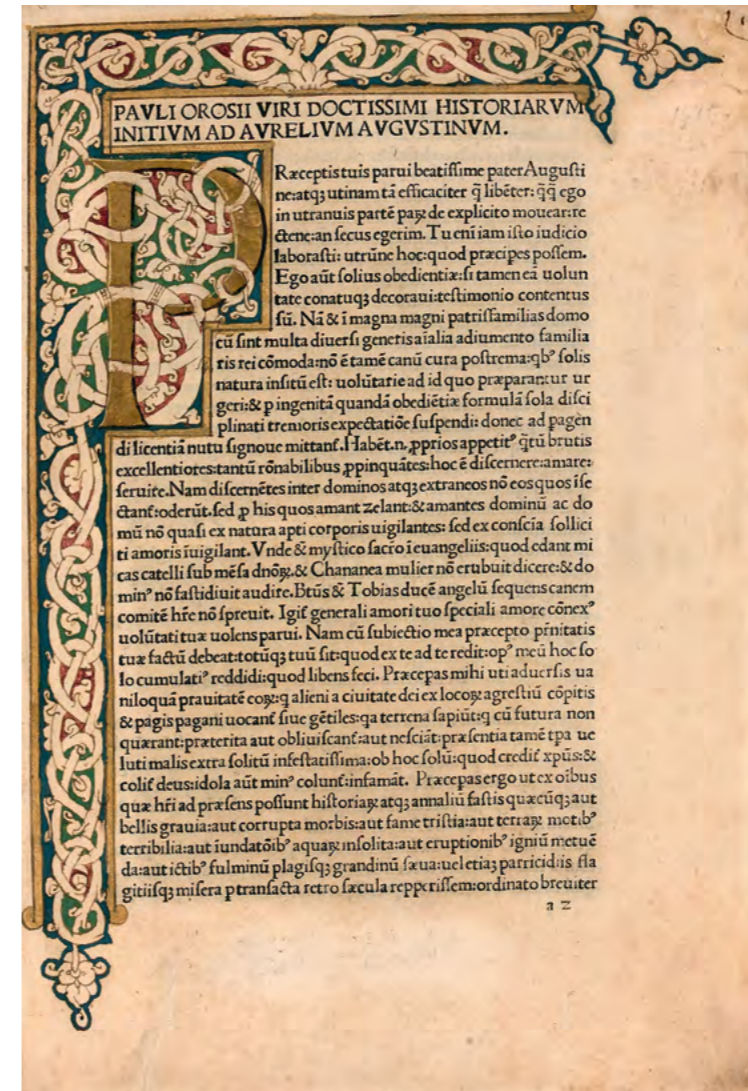 PAVLI OROSII VIRI DOCTISSIMI HISTORIARVM
INITIVM AD AVRELIVM AVGVSTINVM.
Ræceptis tuis parui beatissime pater Augusti
ne: atqꝫ utinam tā efficaciter q̄ libēter: q̄q̄ ego
in utranuis partē paꝝ de explicito mouear: re
ctene: an secus egerim. Tu enī iam isto iudicio
laborasti: utrūne hoc: quod præcipes possem.
Ego aūt solius obedientiæ: si tamen eā uolun
tate conatuqꝫ decoraui: testimonio contentus
sū. Nā & ī magna magni patrisfamilias domo
cū sint multa diuersi generis aīalia adiumento familia
ris rei cōmoda: nō ē tamē canū cura postrema: qbꝰ solis
natura insitū est: uolūtarie ad id quo præparantur ur
geri: & p ingenitā quandā obediētiæ formulā sola disci
plinati tremoris expectatiōe suspendi: donec ad pagen
di licentiā nutu signoue mittanť. Habēt.n. ꝓprios appetitꝰ q̄tū brutis
excellentiores: tantū rōnabilibus ꝓpinquātes: hoc ē discernere: amare:
seruire. Nam discernētes inter dominos atqꝫ extraneos nō eos quos īse
ctanť: oderūt. sed ꝓ his quos amant zelant: & amantes dominū ac do
mū nō quasi ex natura apti corporis uigilantes: sed ex conscīa sollici
ti amoris īuigilant. Vnde & mystico sacro ī euangeliis: quod edant mi
cas catelli sub mēsa dnōꝝ. & Chananea mulier nō erubuit dicere: & do
minꝰ nō fastidiuit audire. Btūs & Tobias ducē angelū sequens canem
comitē hře nō spreuit. Igiť generali amori tuo speciali amore cōnexꝰ
uolūtati tuæ uolens parui. Nam cū subiectio mea præcepto přnitatis
tuæ factū debeat: totūqꝫ tuū sit: quod ex te ad te redit: opꝰ meū hoc so
lo cumulatiꝰ reddidi: quod libens feci. Præcepas mihi uti aduersis ua
niloquā prauitatē eoꝝ: q alieni a ciuitate dei ex locoꝝ agrestiū cōpitis
& pagis pagani uocanť siue gētiles: qa terrena sapiūt: q cū futura non
quærant: præterita aut obliuiscanť: aut nesciāt: præsentia tamē tpa ue
luti malis extra solitū infestatissima: ob hoc solū: quod crediť xpūs: &
coliť deus: idola aūt minꝰ colunť: infamāt. Præcepas ergo ut ex oībus
quæ hři ad præsens possunt historiaꝝ atqꝫ annaliū fastis quæcūqꝫ aut
bellis grauia: aut corrupta morbis: aut fame tristia: aut terraꝝ motibꝰ
terribilia: aut īundatōibꝰ aquaꝝ insolita: aut eruptionibꝰ igniū metuē
da: aut ictibꝰ fulminū plagisqꝫ grandinū sæua: uel etiaꝫ parricidiis fla
gitiisqꝫ misera p transacta retro sæcula repperissem: ordinato breuiter
a 2